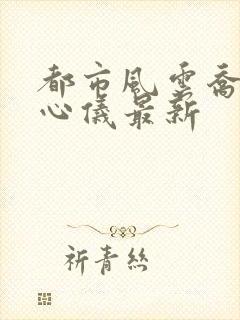 都市風雲喬
心儀最新
祈青絲